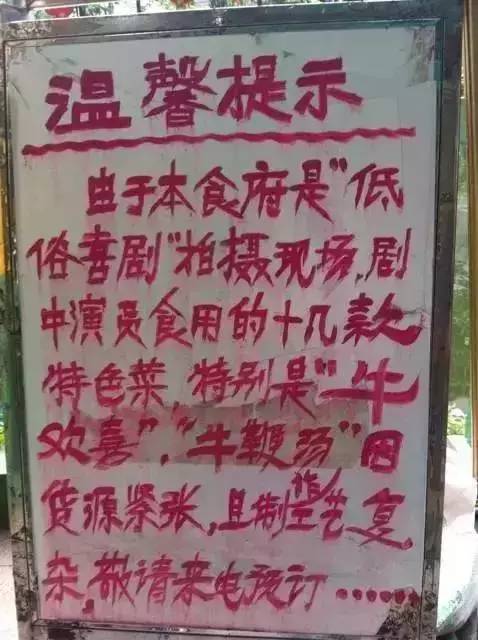 温馨提示
由于本食府是"低
俗喜剧"拍摄现场,剧
中演员食用的十几款
特色菜,特别是"牛
欢喜","牛鞭汤"因
货源紧张,且制作工艺复
杂,敬请来电预订……